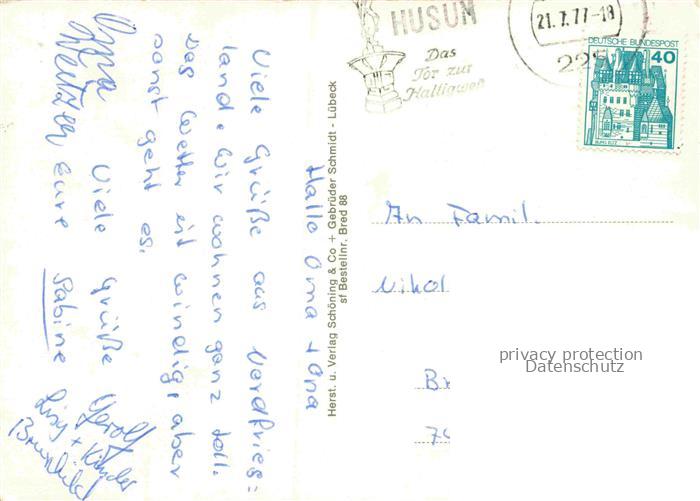 Hallo Oma + Opa
Viele Grüße aus Nordfries=
land. Wir wohnen ganz toll.
Das Wetter ist windig, aber
sonst geht es.
Viele Grüße
Eure Sabine
Gerolf
+ Kinder
Herst. u. Verlag Schöning & Co + Gebrüder Schmidt - Lübeck
sf Bestellnr. Bred 88
HUSUM
Das
Tor zur
Halligwelt
21.7.77-18
DEUTSCHE BUNDESPOST
40
BURG ELTZ
An Famil.
Nikol
Br
privacy protection
Datenschutz